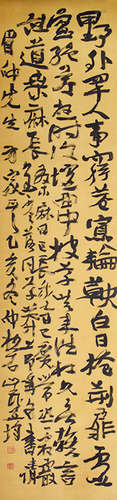 野外罕人事窮巷寡輪鞅白日掩荊扉虛
室絕塵想時復墟曲中披草來往相見無雜言
但道桑麻長桑麻日已長我土日已廣常恐霜霰
至零落同草莽
仲先生方家正之乙亥冬仲